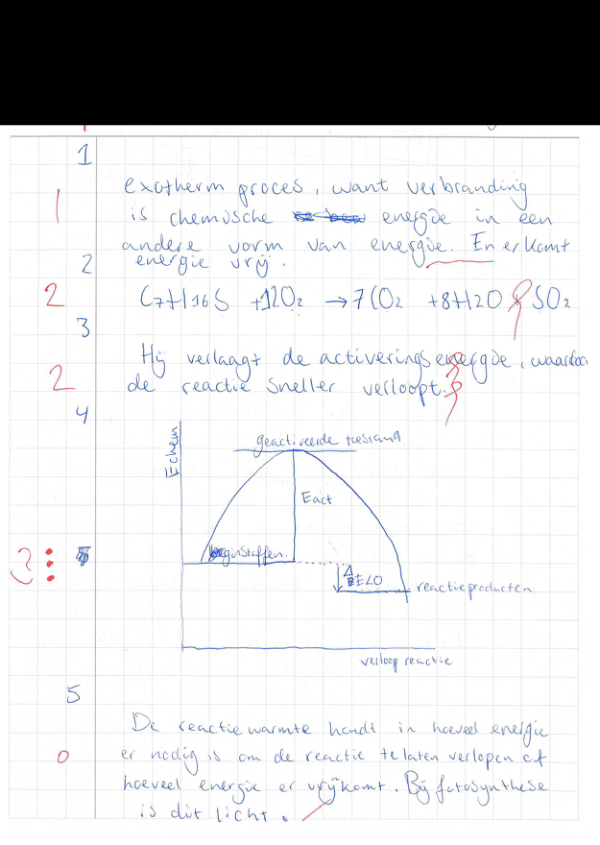 1
exotherm proces, want verbranding
1
is chemische energie in een
andere vorm van energie. En er komt
2
energie vrij.
2
C7H16S +12O2 → 7CO2 +8H2O + SO2
3
Hij verlaagt de activeringsenergie, waardoor
2
de reactie sneller verloopt.
4
Echem
geactiveerde toestand
Eact
3
beginstoffen.
ΔE<0
reactieproducten
verloop reactie
5
De reactiewarmte houdt in hoeveel energie
0
er nodig is om de reactie te laten verlopen of
hoeveel energie er vrijkomt. Bij fotosynthese
is dit licht.